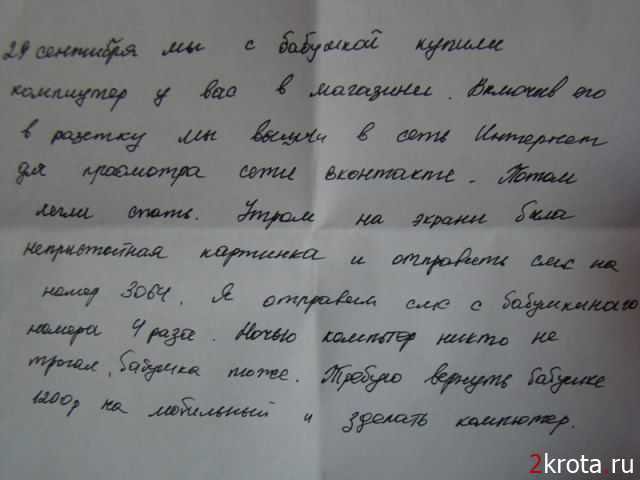 29 сентября мы с бабушкой купили
компиутер у вас в магазины. Включив его
в разетку мы вышли в сеть Интернет
для просмотра сети вконтакте. Потом
легли спать. Утром на экраны была
непристойная картинка и отправить смс на
номер 3064. Я отправил смс с бабушкиного
номера 4 раза. Ночью компьтер никто не
трогал, бабушка тоже. Требую вернуть бабушке
1200р на мобильный и зделать компютер.
2krota.ru